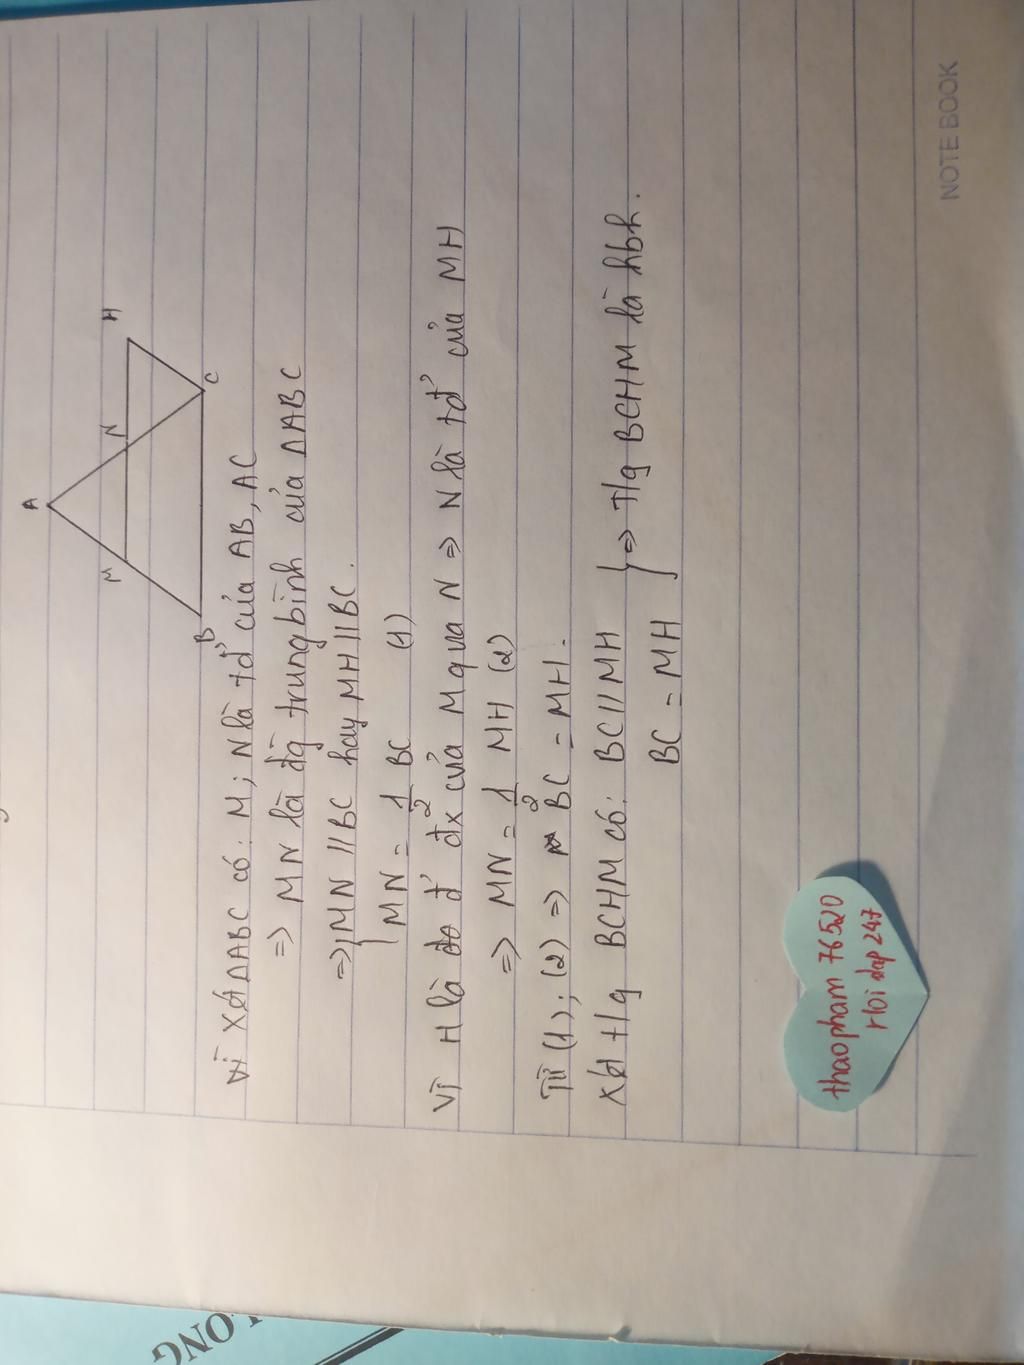 A
M
N
H
B
C
Vì Xét ΔABC có: M; N là tđ' của AB, AC
=> MN là đg trung bình của ΔABC
=> { MN // BC hay MH // BC.
MN = 1/2 BC (1)
Vì H là đ' đx của M qua N => N là tđ' của MH
=> MN = 1/2 MH (2)
Từ (1); (2) => BC = MH.
Xét t/g BCHM có: BC // MH } => T/g BCHM là hbh.
BC = MH
thaopham 76520
Hoi dap 247
NOTE BOOK
LONG